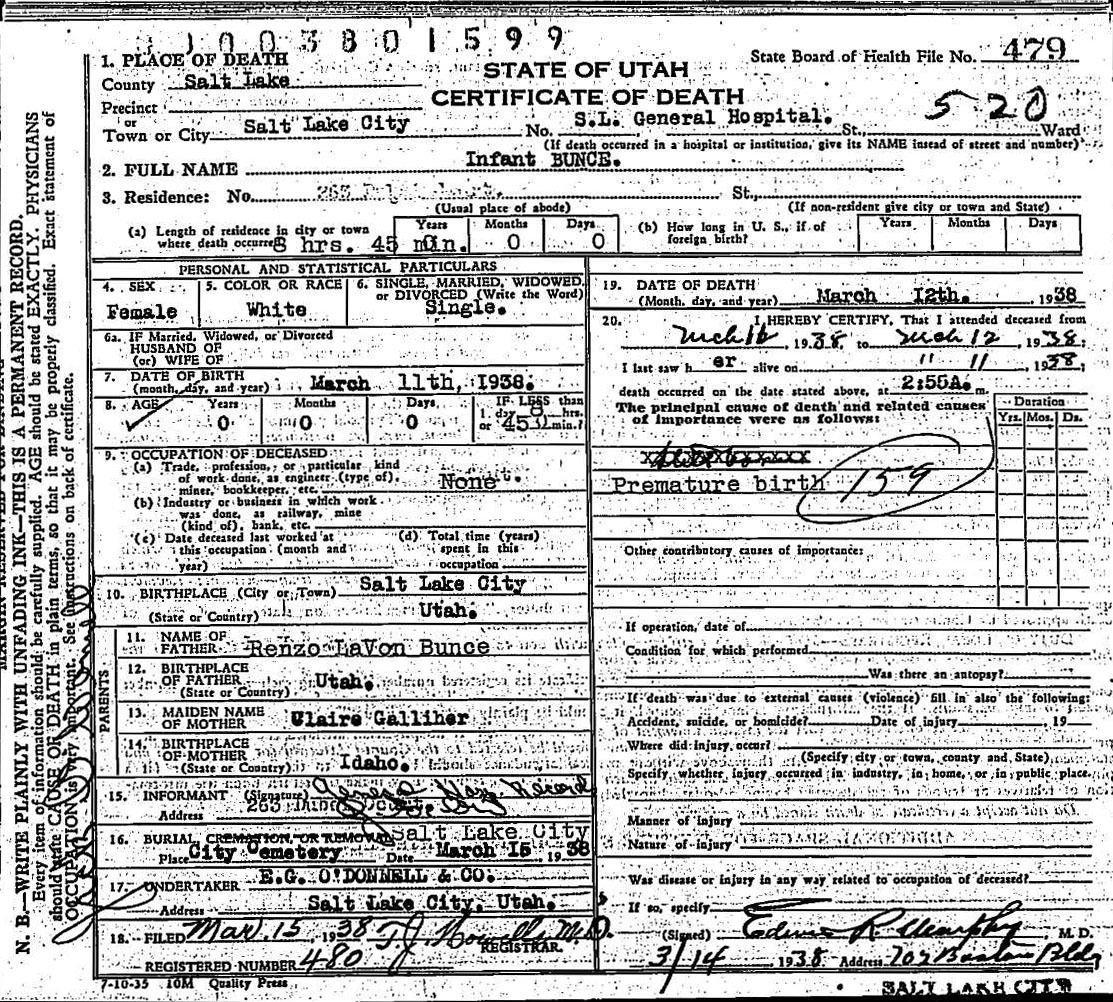 1003801599
1. PLACE OF DEATH
County Salt Lake
Precinct
or
Town or City Salt Lake City
STATE OF UTAH
CERTIFICATE OF DEATH
State Board of Health File No. 479
520
No. S.L. General Hospital. St., Ward
(If death occurred in a hospital or institution, give its NAME insead of street and number)
2. FULL NAME Infant BUNCE.
3. Residence: No. 263 St.,
(Usual place of abode) (If non-resident give city or town and State)
(a) Length of residence in city or town where death occurred 8 hrs. 45 min. Years 0 Months 0 Days 0
(b) How long in U. S., if of foreign birth? Years Months Days
PERSONAL AND STATISTICAL PARTICULARS
4. SEX Female
5. COLOR OR RACE White
6. SINGLE, MARRIED, WIDOWED, or DIVORCED (Write the Word) Single.
6a. IF Married, Widowed, or Divorced
HUSBAND OF
(or) WIFE OF
7. DATE OF BIRTH
(month, day, and year) March 11th, 1938.
8. AGE Years 0 Months 0 Days 0 IF LESS than 1 day 8 hrs. or 45 min.?
9. OCCUPATION OF DECEASED
(a) Trade, profession, or particular kind
of work done, as engineer (type of),
miner, bookkeeper, etc. None
(b) Industry or business in which work
was done, as railway, mine
(kind of), bank, etc.
(c) Date deceased last worked at
this occupation (month and
year)
(d) Total time (years)
spent in this
occupation
10. BIRTHPLACE (City or Town) Salt Lake City
(State or Country) Utah.
PARENTS
11. NAME OF
FATHER Renzo LaVon Bunce
12. BIRTHPLACE
OF FATHER
(State or Country) Utah.
13. MAIDEN NAME
OF MOTHER Claire Galliher
14. BIRTHPLACE
OF MOTHER
(State or Country) Idaho.
15. INFORMANT (Signature) General Hosp. Record
Address 263
16. BURIAL, CREMATION, OR REMOVAL Salt Lake City
Place City Cemetery Date March 15 1938
17. UNDERTAKER E.G. O'DONNELL & CO.
Address Salt Lake City, Utah.
18. FILED Mar. 15, 1938 T.J. Howells M.D.
REGISTRAR.
REGISTERED NUMBER 480
7-10-35 10M Quality Press
19. DATE OF DEATH
(Month, day, and year) March 12th. , 1938
20. I HEREBY CERTIFY, That I attended deceased from
, 1938 to Mch 12 , 1938;
I last saw her alive on " 11 , 1938;
death occurred on the date stated above, at 2:55A. m.
The principal cause of death and related causes
of importance were as follows:
Duration
Yrs. Mos. Ds.
Premature birth 159
Other contributory causes of importance:
If operation, date of
Condition for which performed
Was there an autopsy?
If death was due to external causes (violence) fill in also the following:
Accident, suicide, or homicide? Date of injury , 19
Where did injury occur?
(Specify city or town, county and State)
Specify whether injury occurred in industry, in home, or in public place.
Manner of injury
Nature of injury
Was disease or injury in any way related to occupation of deceased?
If so, specify
(Signed) Edwin R. Murphy M. D.
3/14 , 1938 Address 709 Boston Bldg
SALT LAKE CITY
N. B.—WRITE PLAINLY WITH UNFADING INK—THIS IS A PERMANENT RECORD.
Every item of information should be carefully supplied. AGE should be stated EXACTLY. PHYSICIANS
should state CAUSE OF DEATH in plain terms, so that it may be properly classified. Exact statement of
OCCUPATION is very important. See instructions on back of certificate.